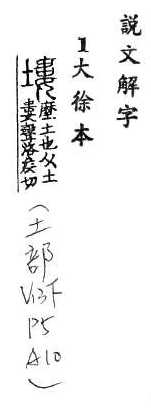 說文解字
1大徐本
塿塺土也从土
婁聲洛矦切
(土部V13下P5A10)